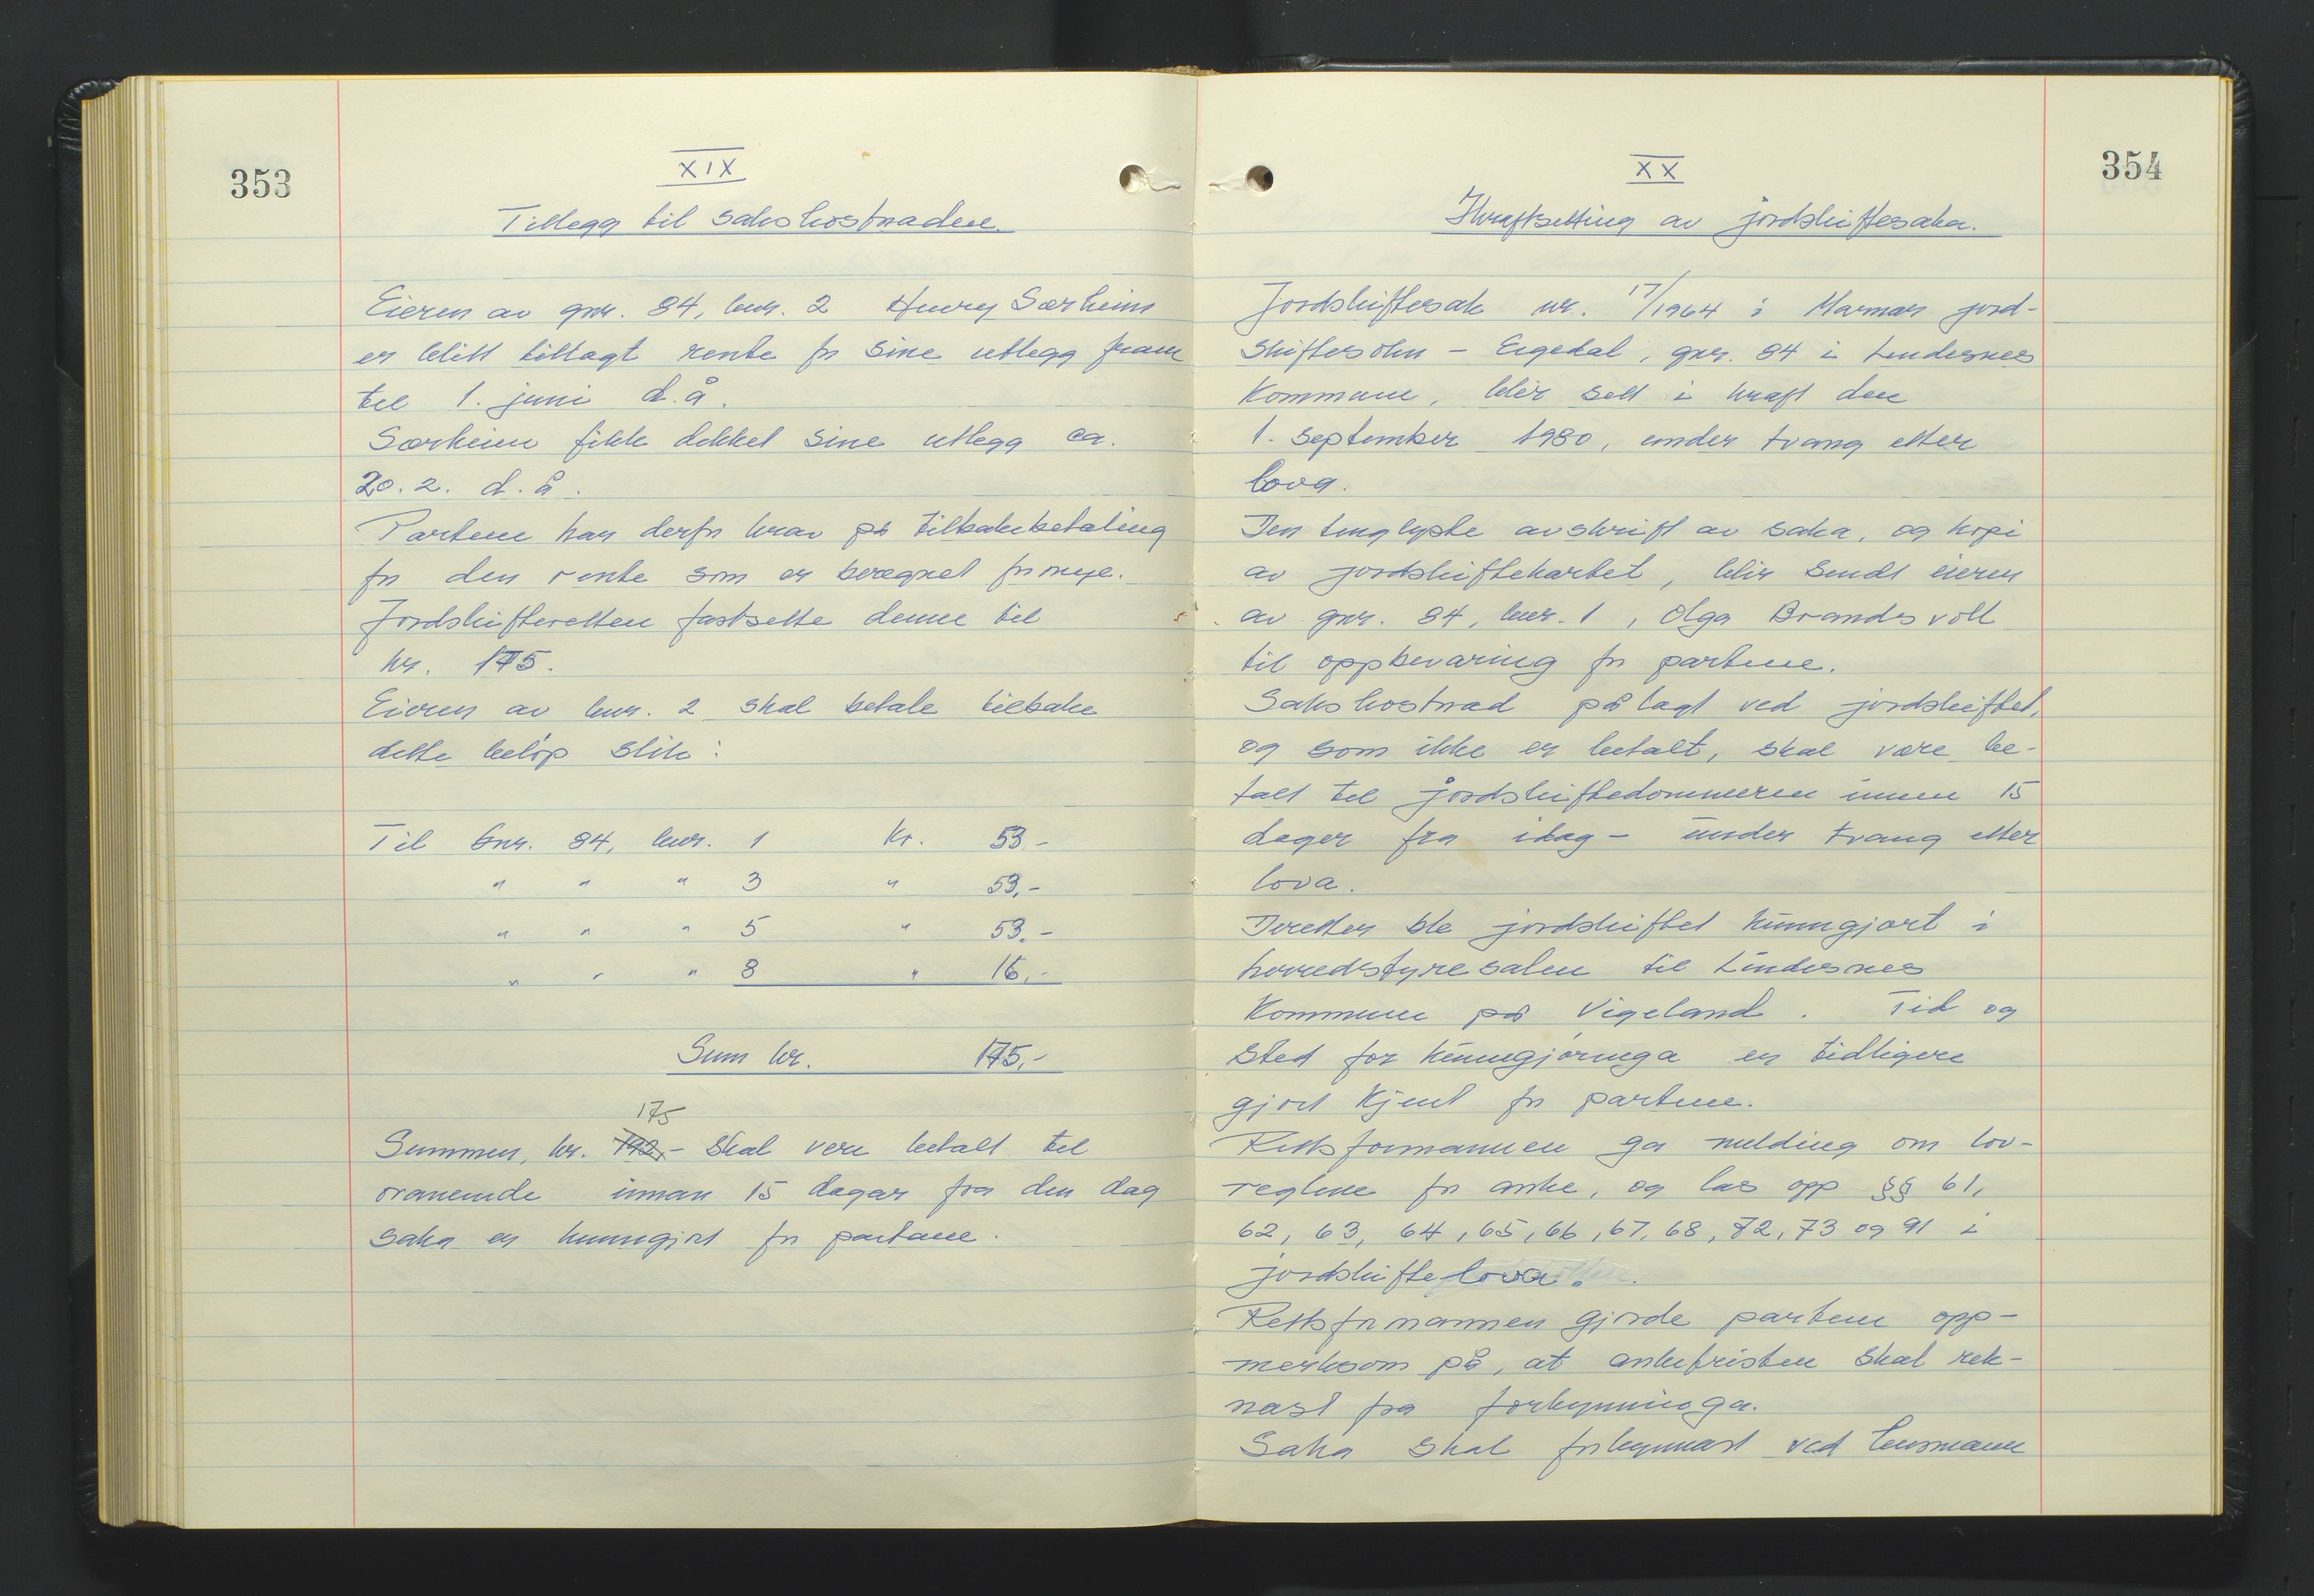 353
XIX
Tillegg til sakskostnaden.
Eieren av gnr. 84, bnr. 2 Henry Særheim
er blitt tillagt rente for sine utlegg fram
til 1. juni d.å.
Særheim fikk dekket sine utlegg ca.
20.2. d.å.
Partene har derfor krav på tilbakebetaling
for den rente som er beregnet for mye.
Jordskifteretten fastsette denne til
kr. 175.
Eieren av bnr. 2 skal betale tilbake
dette beløp slik:
Til Gnr. 84, bnr. 1 Kr. 53.-
" " " 3 " 53.-
" " " 5 " 53.-
" " " 8 " 16.-
Sum kr. 175.-
175
Summen, kr. 192,- skal vere betalt til
ovanemnde innan 15 dagar fra den dag
saka er kunngjort for partane.
354
XX
Ikraftsetting av jordskiftesaka.
Jordskiftesak nr. 17/1964 i Marnar jord-
skiftesokn - Eigedal, gnr. 84 i Lindesnes
Kommune, blir sett i kraft den
1. september 1980, under tvang etter
lova.
Den tinglyste avskrift av saka, og kopi
av jordskiftekartet, blir sendt eieren
av gnr. 84, bnr. 1, Olga Brandsvoll
til oppbevaring for partene.
Sakskostnad pålagt ved jordskiftet,
og som ikke er betalt, skal være be-
talt til jordskiftedommeren innen 15
dager fra idag - under tvang etter
lova.
Deretter ble jordskiftet kunngjort i
herredstyresalen til Lindesnes
Kommune på Vigeland. Tid og
sted for kunngjøringa er tidligere
gjort kjent for partene.
Rettsformannen ga melding om lov-
reglene for anke, og las opp §§ 61,
62, 63, 64, 65, 66, 67, 68, 72, 73 og 91 i
jordskiftelova.
Rettsformannen gjorde partene opp-
merksom på, at ankefristen skal rek-
nast fra forkynninga.
Saka skal forkynnast ved lensmann